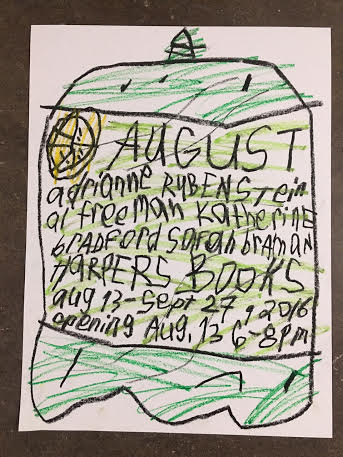 AUGUST
adrianne RUBENStein
al freeman Katherine
bRADford Sarah braman
HARPERS BOOKS
aug 13-Sept 27, 2016
opening Aug. 13 6-8pm